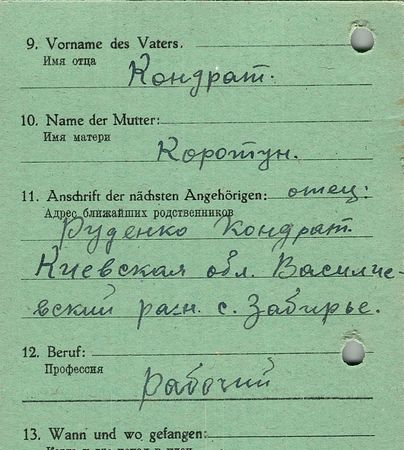 9. Vorname des Vaters.
Имя отца
Кондрат.
10. Name der Mutter:
Имя матери
Коротун.
11. Anschrift der nächsten Angehörigen: отец:
Адрес ближайших родственников
Руденко Кондрат.
Киевская обл. Василие-
вский райн. с. Забирье.
12. Beruf:
Профессия
рабочий
13. Wann und wo gefangen: